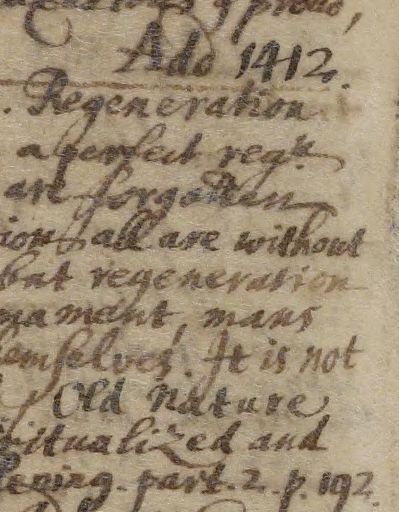 Add 1412.
. Regeneration
a perfect regn
are forgotten
ions all are without
but regeneration
nament, mans
emselves. It is not
Old Nature
itualized and
lening. part. 2. p. 192.